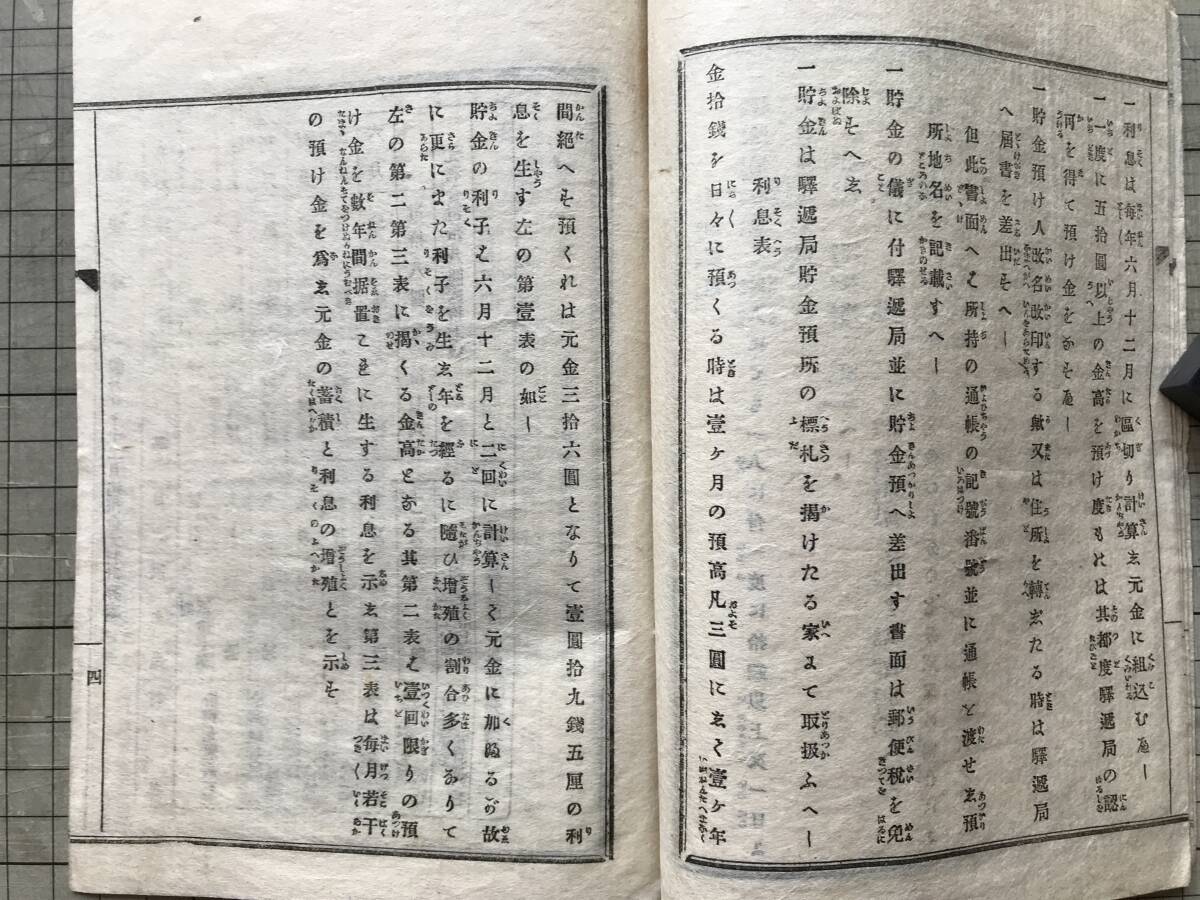 一利息は毎年六月十二月に區切り計算し元金に組込むべし
一一度に五拾圓以上の金高を預け度ものは其都度驛遞局の認
可を得て預け金をなすべし
一貯金預け人改名改印する歟又は住所を轉したる時は驛遞局
へ届書を差出すへし
但此書面へは所持の通帳の記號番號並に通帳を渡せし預
所地名を記載すへし
一貯金の儀に付驛遞局並に貯金預へ差出す書面は郵便税を免
除すへし
一貯金は驛遞局貯金預所の標札を揭けたる家にて取扱ふへし
利息表
金拾錢を日々に預くる時は壹ケ月の預高凡三圓にして壹ケ年
間絕へす預くれは元金三拾六圓となりて壹圓拾九錢五厘の利
息を生す左の第壹表の如し
貯金の利子は六月十二月と二回に計算して元金に加ぬるが故
に更にまた利子を生し年を經るに隨ひ增殖の割合多くなりて
左の第二第三表に揭くる金高となる其第二表は壹回限りの預
け金を數年間据置ことに生する利息を示し第三表は毎月若干
の預け金を爲し元金の蓄積と利息の增殖とを示す
四